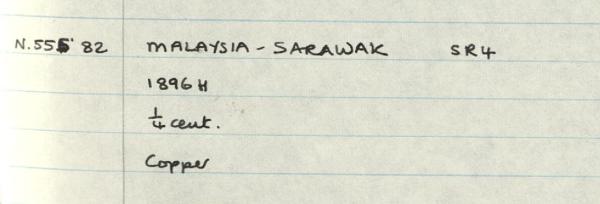 N.555' 82 MALAYSIA - SARAWAK SR4
1896 H
1/4 cent.
Copper